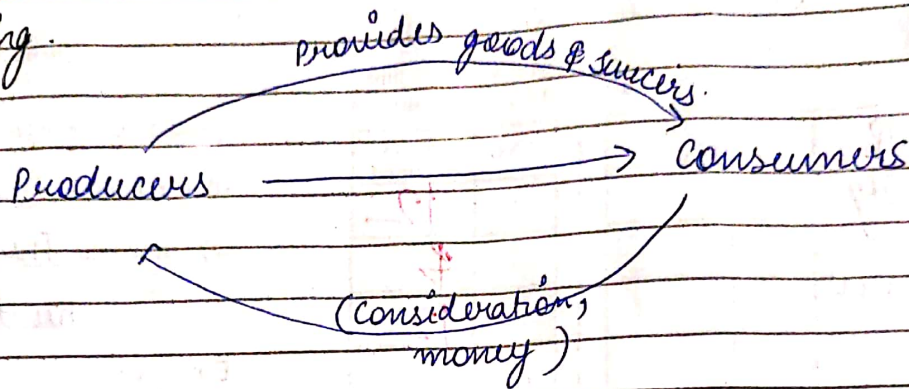 ng.
Provides goods & services.
Producers
Consumers
(Consideration,
money)